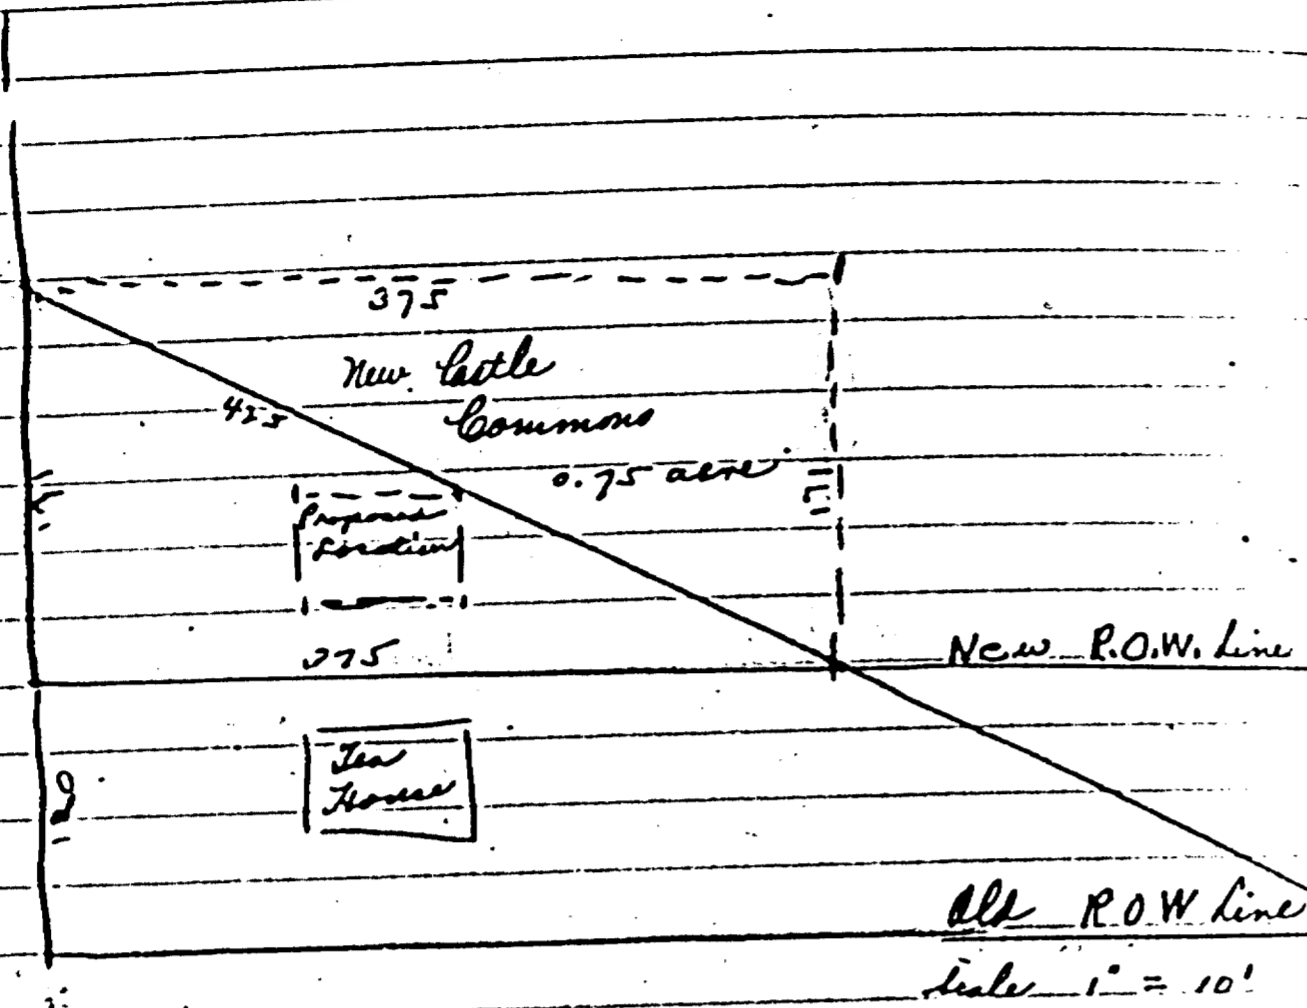 375
New Castle
Commons
423
0.75 acre
Proposed
Location
375
New R.O.W. Line
Tea
House
Old R.O.W Line
Scale 1" = 10'